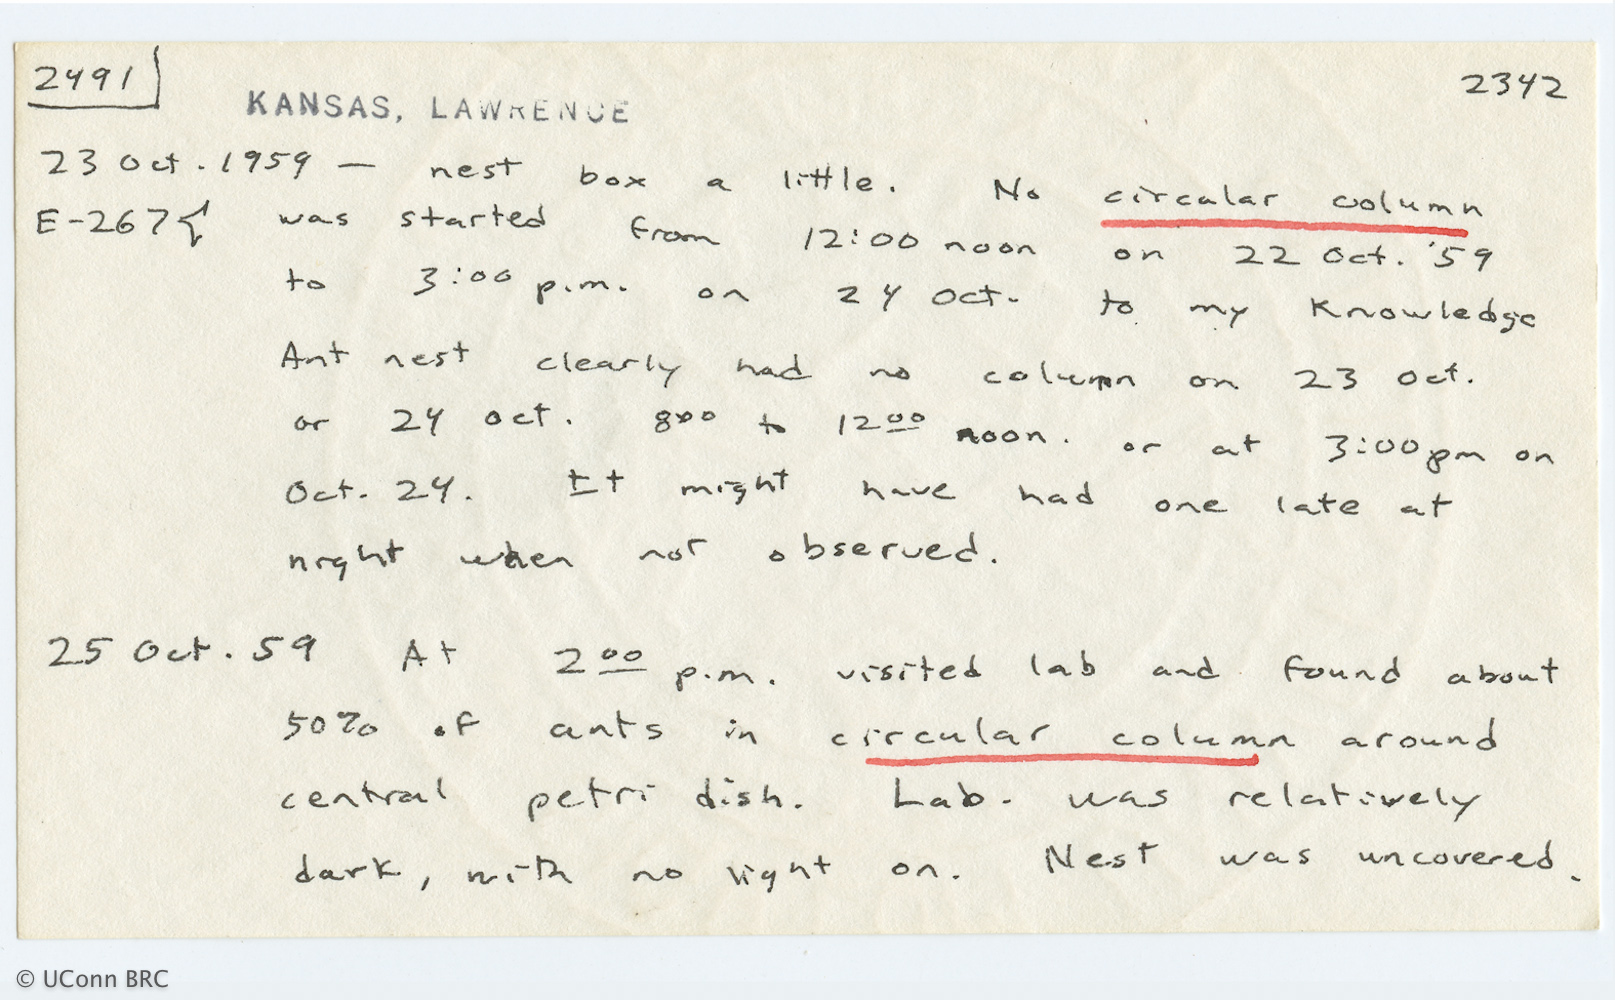 2491
2342
KANSAS, LAWRENCE
23 Oct. 1959 — nest box a little. No circular column
E-267{ was started from 12:00 noon on 22 Oct. '59
to 3:00 p.m. on 24 Oct. to my knowledge
Ant nest clearly had no column on 23 Oct.
or 24 Oct. 8:00 to 12:00 noon. or at 3:00pm on
Oct. 24. It might have had one late at
night when not observed.
25 Oct. 59 At 2:00 p.m. visited lab and found about
50% of ants in circular column around
central petri dish. Lab. was relatively
dark, with no light on. Nest was uncovered.
© UConn BRC